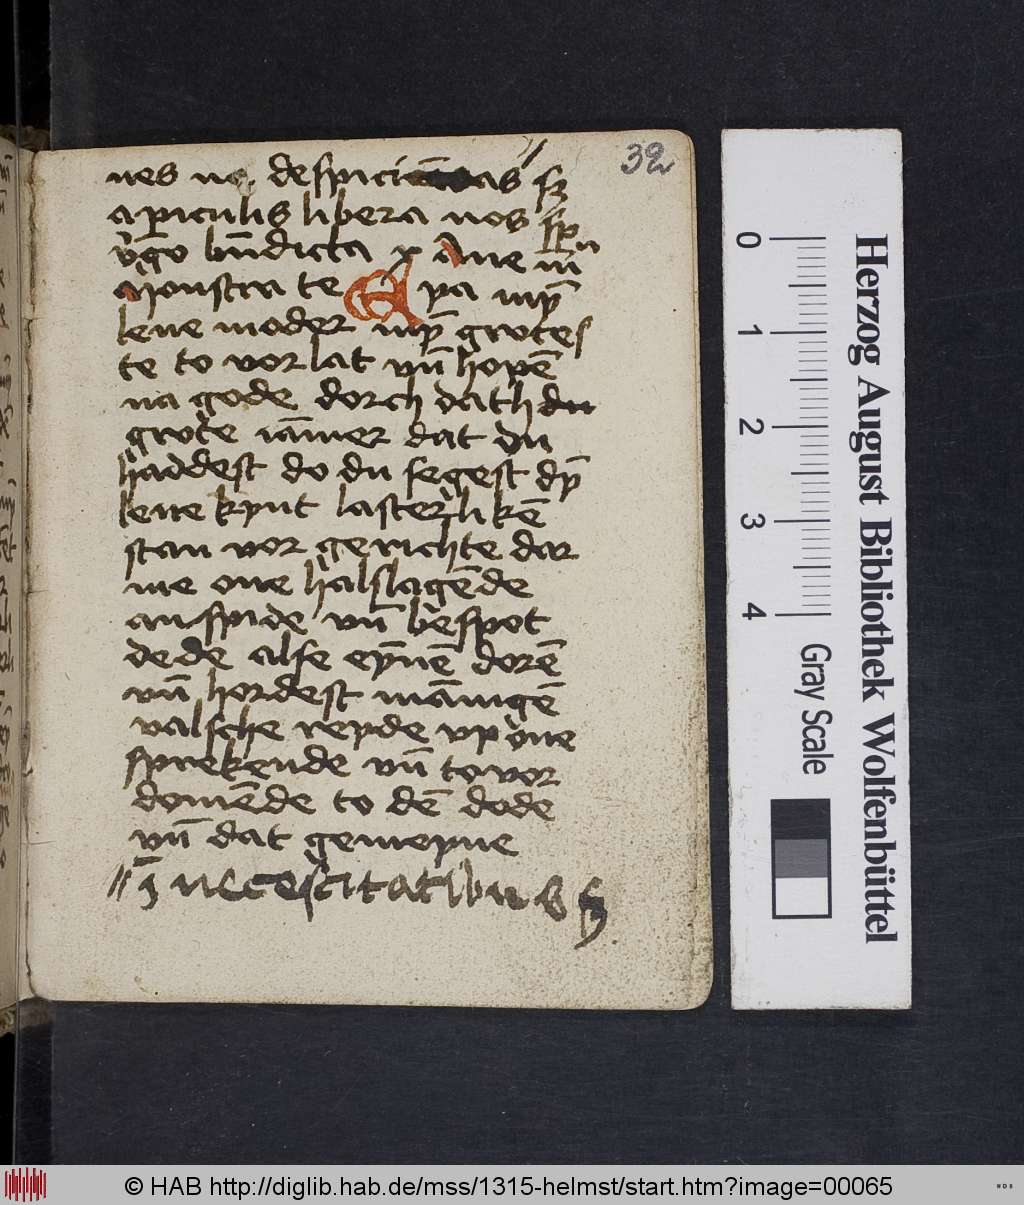 32
nes nō despicias sz
a piculis libera nos sp̄
v̾go bn̄dicta p̱ Aue m̄
Monstra te Eya myn̄
leue moder myn̄ grotes
te to vor lat vn̄ hopē
na gode dorch dath du
grote iām̄er dat du
haddest do du segest dyn̄
leue kynt lasterlikē
stan vor gerichte dar
me one halslagēde
anspide vn̄ bespot
dede alse eynē dorē
vn̄ hordest mānigē
valsche reyde vp one
sprekende vn̄ to vor
domēde to dē dode
vn̄ dat gemeyne
// ī necescitatibus
0
1
2
3
4
Gray Scale
Herzog August Bibliothek Wolfenbüttel
© HAB http://diglib.hab.de/mss/1315-helmst/start.htm?image=00065